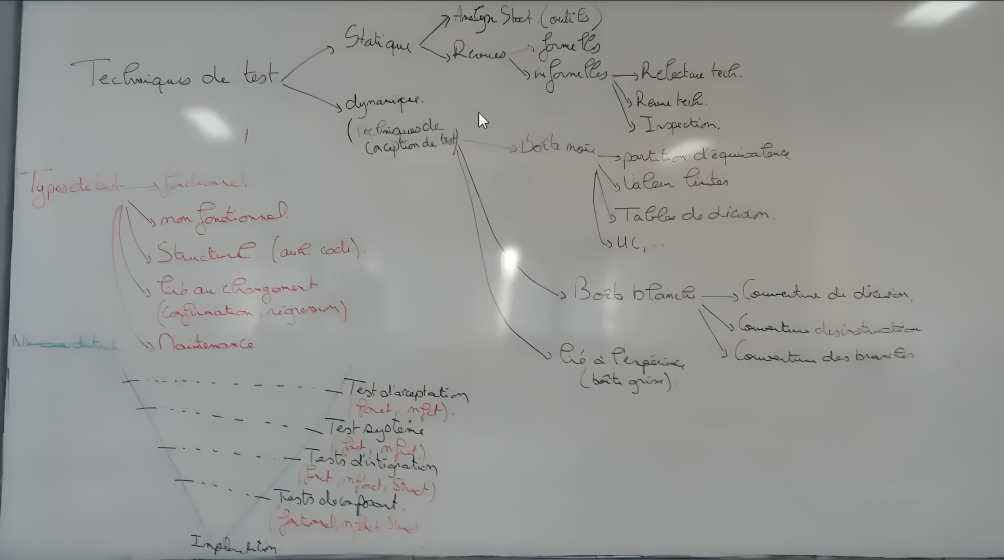 Techniques de test
Statique
Analyse Stat. (outils)
Revues
formelles
informelles
Relecture tech.
Revue tech.
Inspection.
dynamique.
(Techniques de
conception de test)
Boîte noire
partition d'équivalence
Valeur limites
Tables de décision.
UC, ...
Boîte blanche
Couverture de décision.
Couverture des instruction
Couverture des branches
lié à l'expérience
(boîte grise)
Types de test
fonctionnel
non fonctionnel
Structurel (avec code).
lié au changement
(confirmation, régression)
Maintenance
Niveaux de test
Test d'acceptation
(fonct, nfct).
Test système
(fonct, nfct)
Tests d'intégration
(fonct, nfonct, Struct)
Tests de composant.
Implémentation